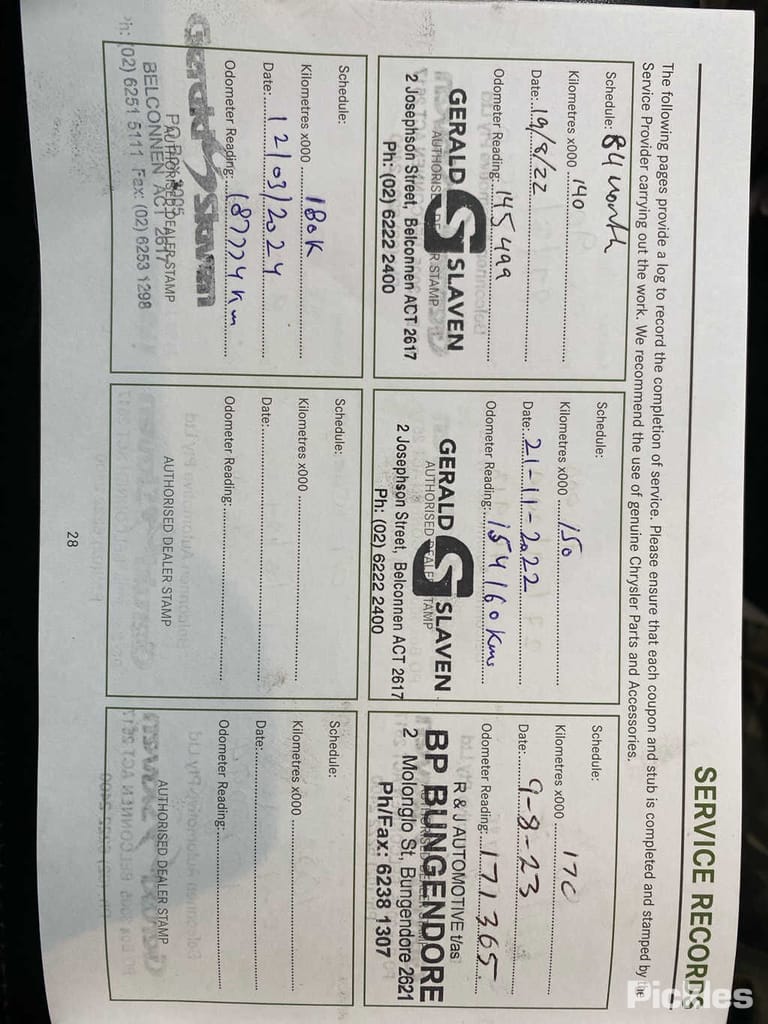 SERVICE RECORDS
The following pages provide a log to record the completion of service. Please ensure that each coupon and stub is completed and stamped by the
Service Provider carrying out the work. We recommend the use of genuine Chrysler Parts and Accessories.
Schedule: 84 month
Kilometres x000 140
Date: 19/8/22
Odometer Reading: 145 499
GERALD S SLAVEN
AUTHORISED DEALER STAMP
2 Josephson Street, Belconnen ACT 2617
Ph: (02) 6222 2400
Schedule:
Kilometres x000 150
Date: 21-11-2022
Odometer Reading: 154160 Kms
GERALD S SLAVEN
AUTHORISED DEALER STAMP
2 Josephson Street, Belconnen ACT 2617
Ph: (02) 6222 2400
Schedule:
Kilometres x000 170
Date: 9-8-23
Odometer Reading: 171365
R & J AUTOMOTIVE t/as
BP BUNGENDORE
2 Molonglo St, Bungendore 2621
Ph/Fax: 6238 1307
Schedule:
Kilometres x000 180K
Date: 12/03/2024
Odometer Reading: 187774 Km
Gerald Slaven
AUTHORISED DEALER STAMP
BELCONNEN ACT 2617
Ph: (02) 6251 5111 Fax: (02) 6253 1298
Schedule:
Kilometres x000
Date:
Odometer Reading:
AUTHORISED DEALER STAMP
Schedule:
Kilometres x000
Date:
Odometer Reading:
AUTHORISED DEALER STAMP
28
Pickles